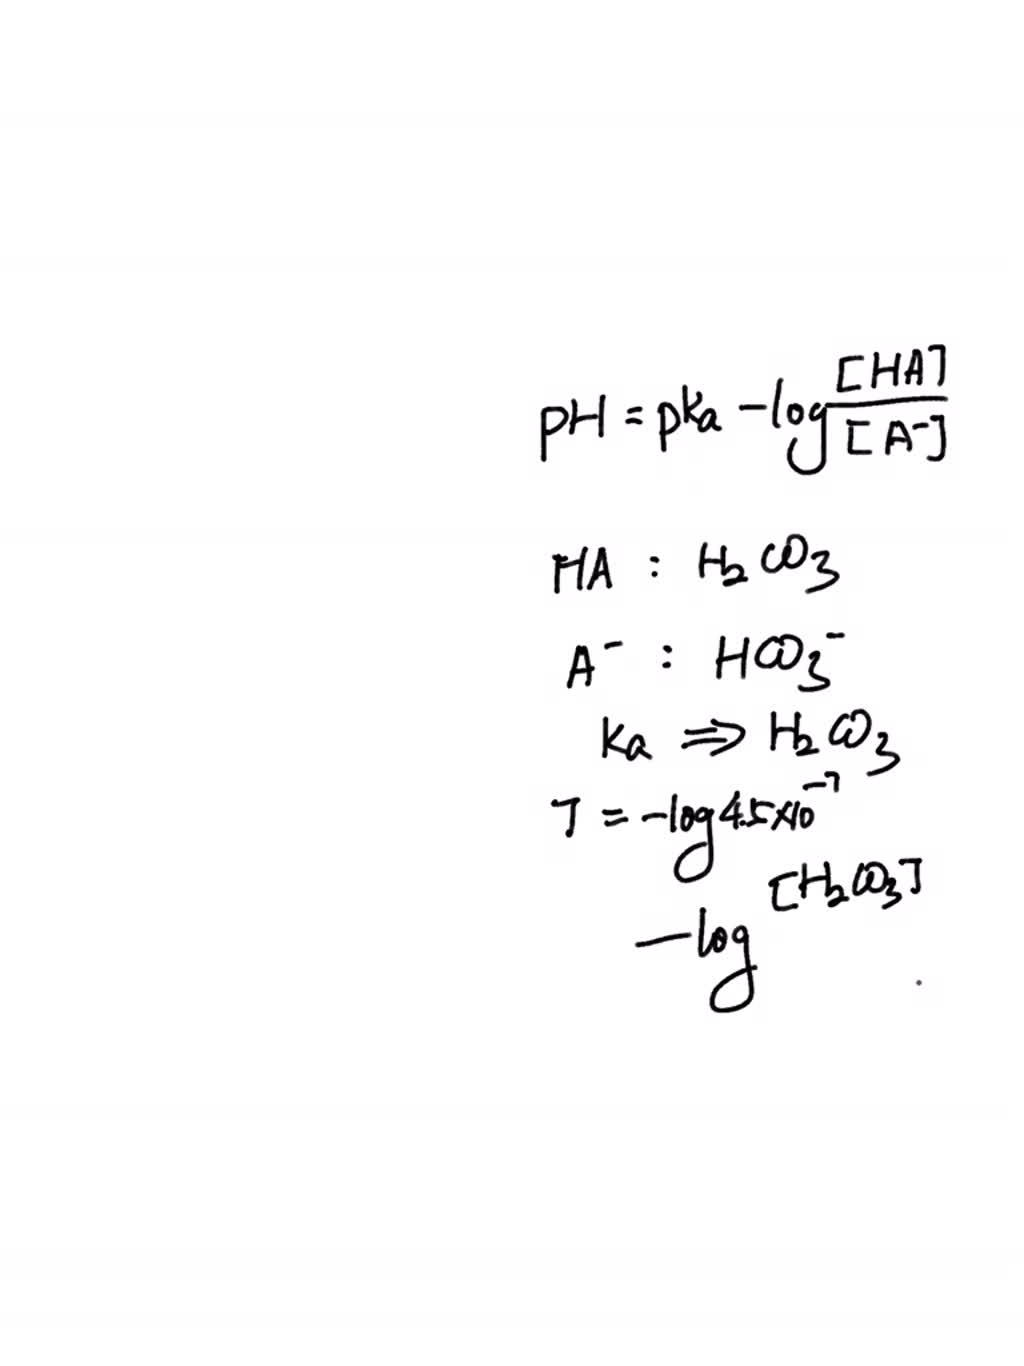 pH = pKa - log [HA] / [A⁻]
HA : H₂CO₃
A⁻ : HCO₃⁻
Ka ⇒ H₂CO₃
7 = -log 4.5×10⁻⁷
[H₂CO₃]
-log